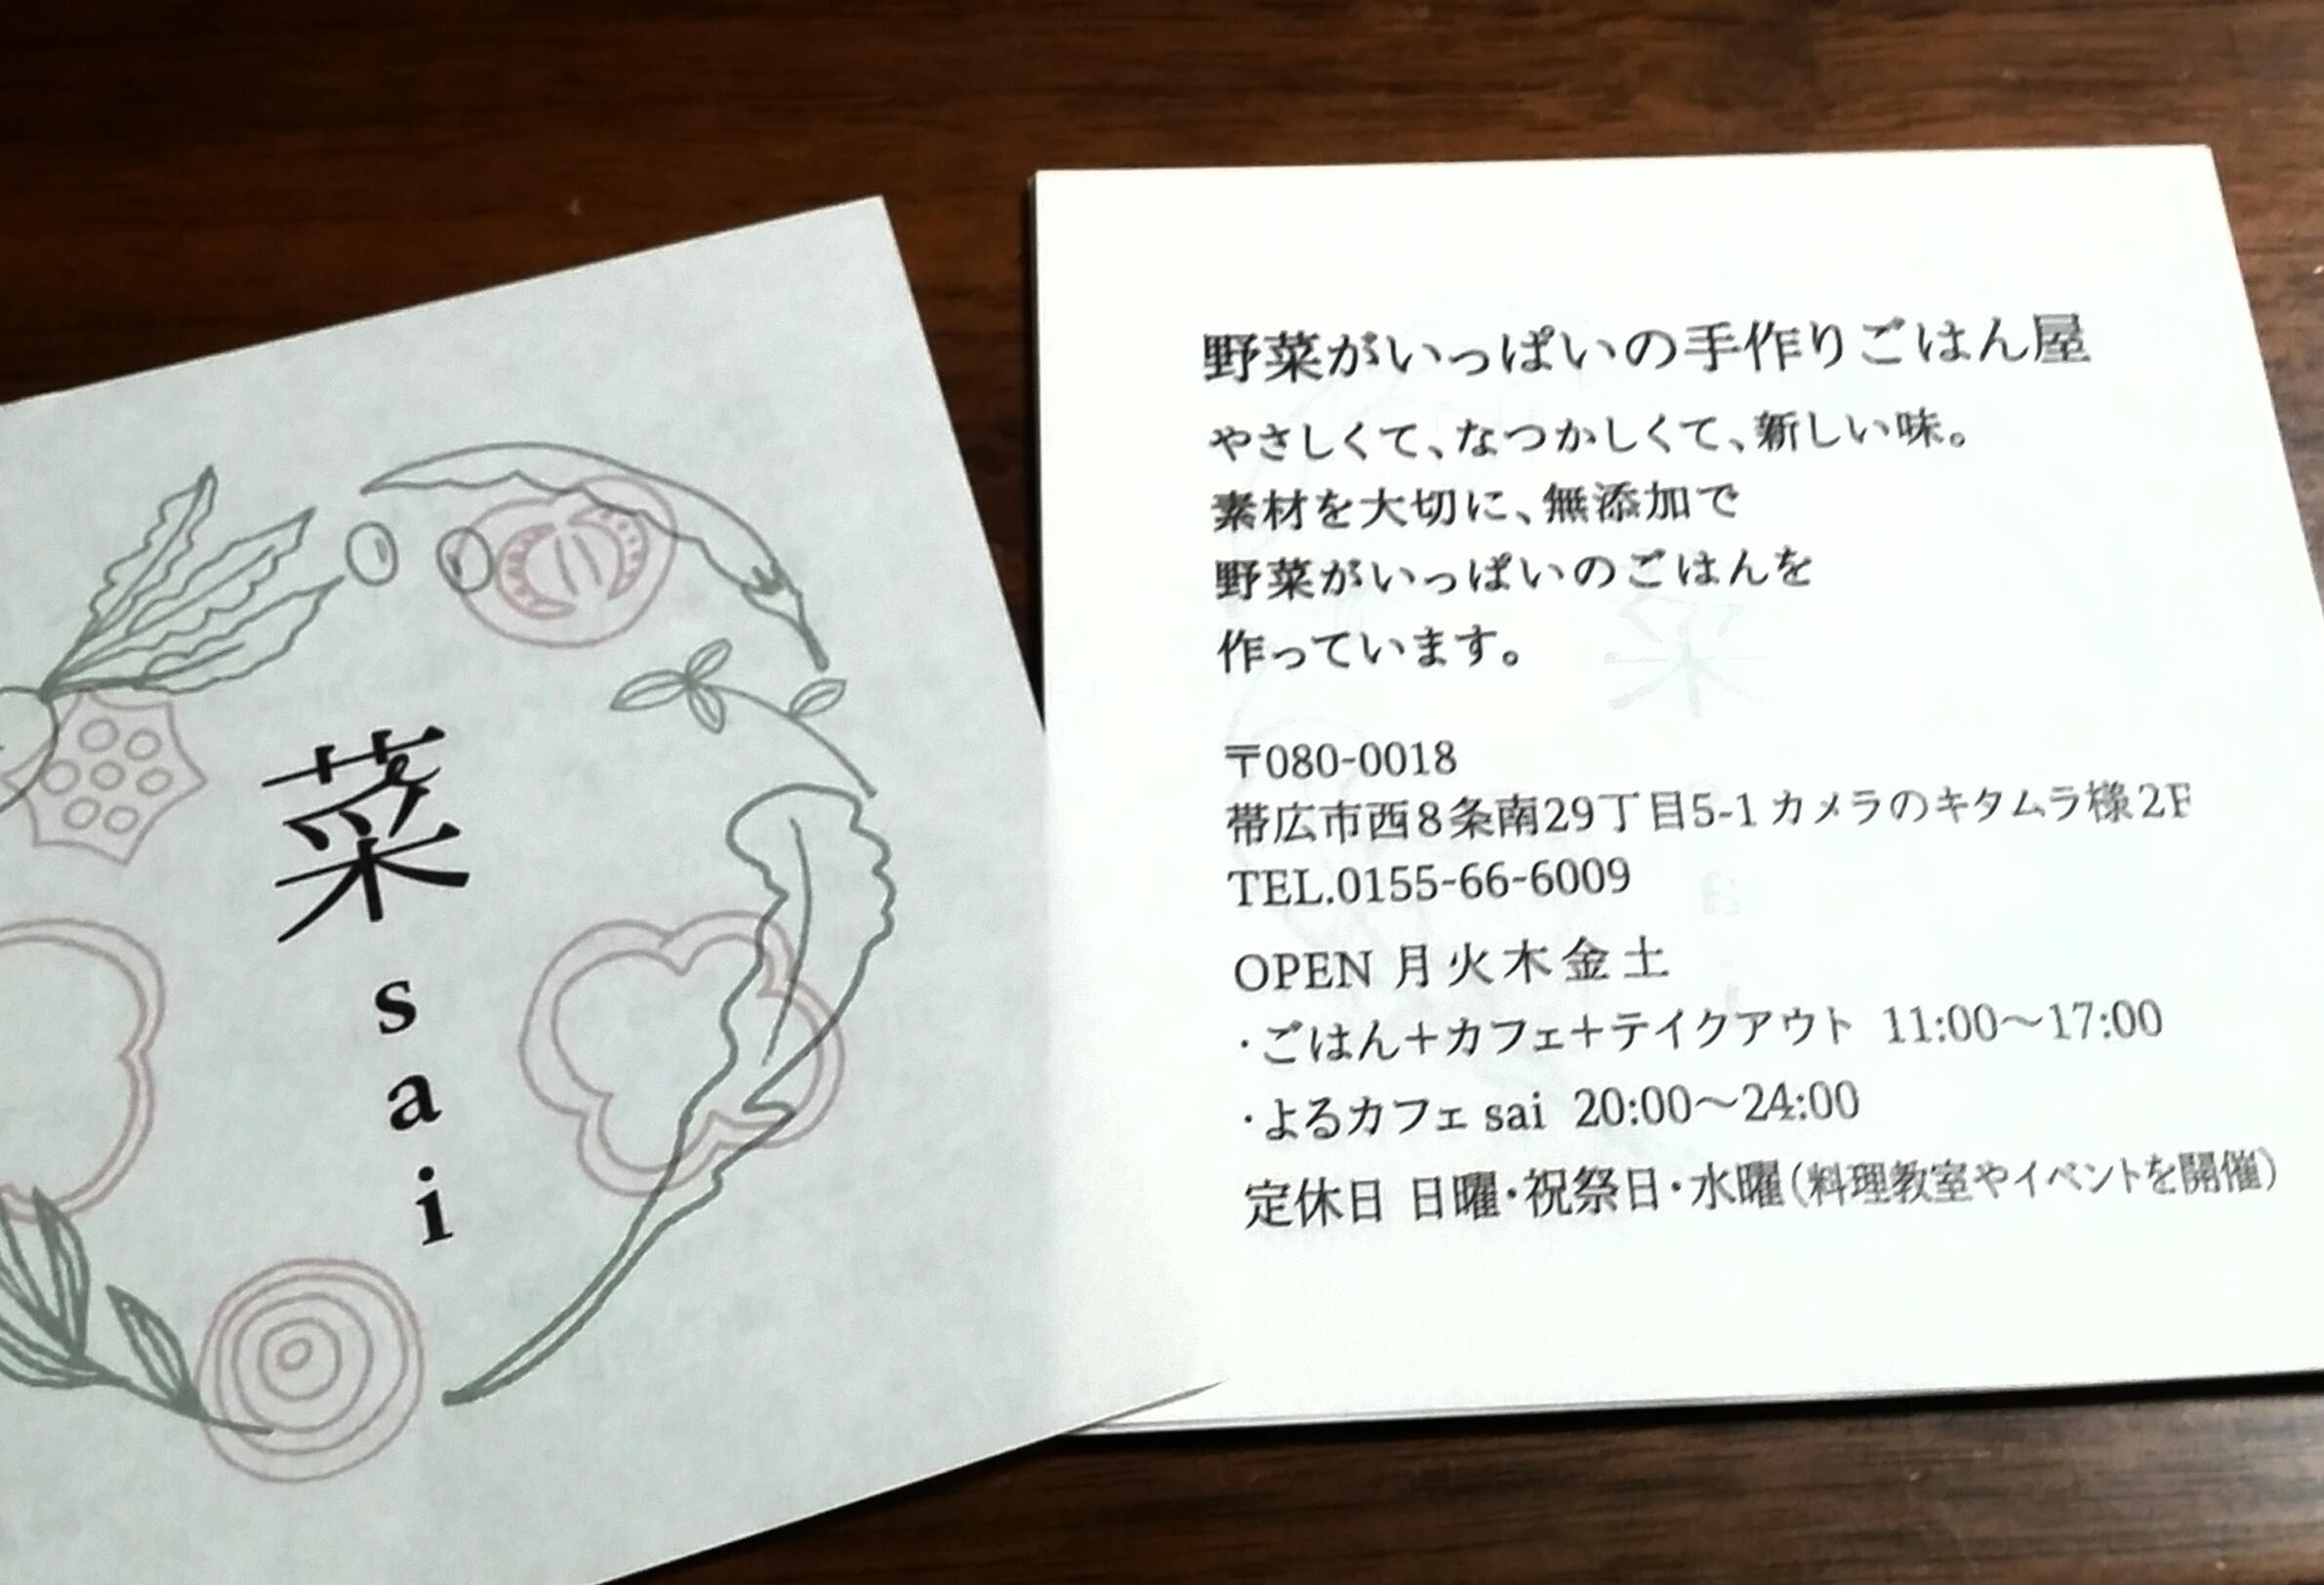 菜
sai
野菜がいっぱいの手作りごはん屋
やさしくて、なつかしくて、新しい味。
素材を大切に、無添加で
野菜がいっぱいのごはんを
作っています。
〒080-0018
帯広市西8条南29丁目5-1 カメラのキタムラ様2F
TEL.0155-66-6009
OPEN 月火木金土
・ごはん＋カフェ＋テイクアウト 11:00〜17:00
・よるカフェ sai 20:00〜24:00
定休日 日曜・祝祭日・水曜（料理教室やイベントを開催）